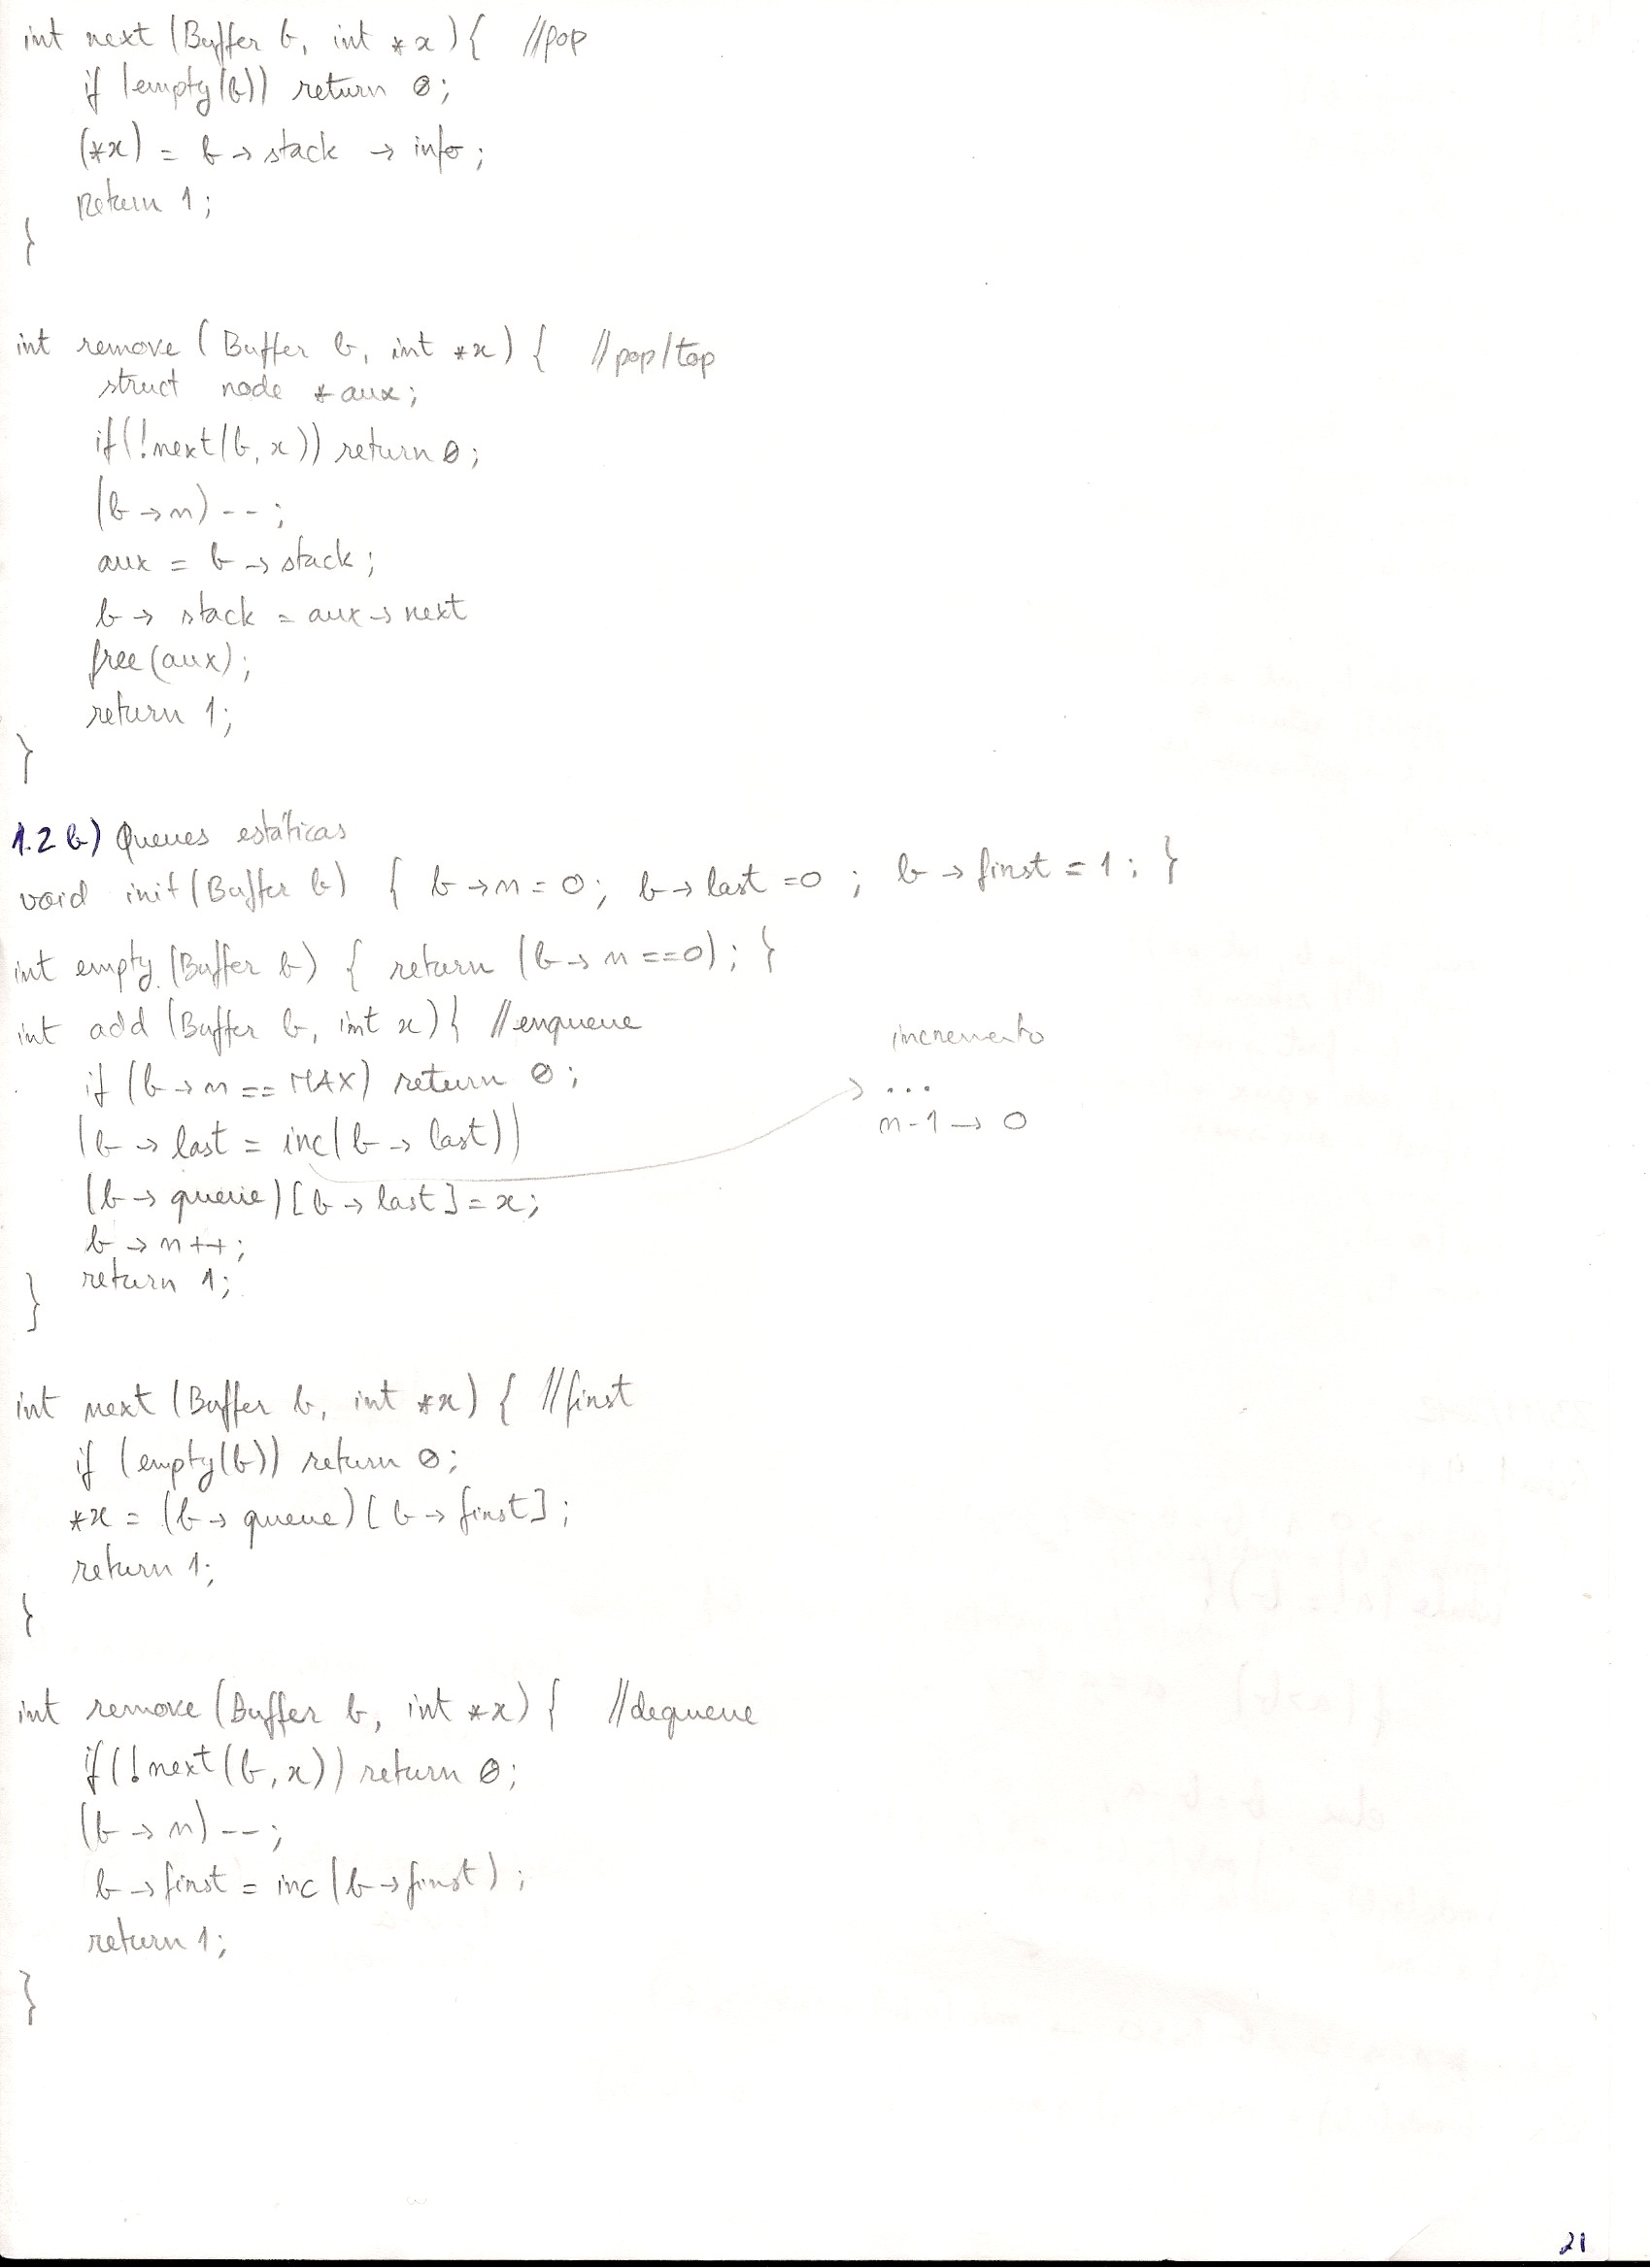 int next (Buffer b, int *x){ //pop
if (empty(b)) return 0;
(*x) = b → stack → info;
Return 1;
}
int remove ( Buffer b, int *x) { //pop/top
struct node *aux;
if(!next(b,x)) return 0;
(b → n) --;
aux = b → stack;
b → stack = aux → next
free(aux);
return 1;
}
1.2 b) Queues estáticas
void init(Buffer b) { b → n = 0; b → last =0 ; b → first = 1; }
int empty (Buffer b) { return (b → n ==0); }
int add (Buffer b, int x){ //enqueue
if (b → n == MAX) return 0;
(b → last = inc(b → last))
incremento
...
n-1 → 0
(b → queue)[b → last]=x;
b → n++;
return 1;
}
int next (Buffer b, int *x) { //first
if (empty(b)) return 0;
*x = (b → queue)[b → first];
return 1;
}
int remove (Buffer b, int *x) { //dequeue
if(!next(b,x)) return 0;
(b → n) --;
b → first = inc (b → first);
return 1;
}
21